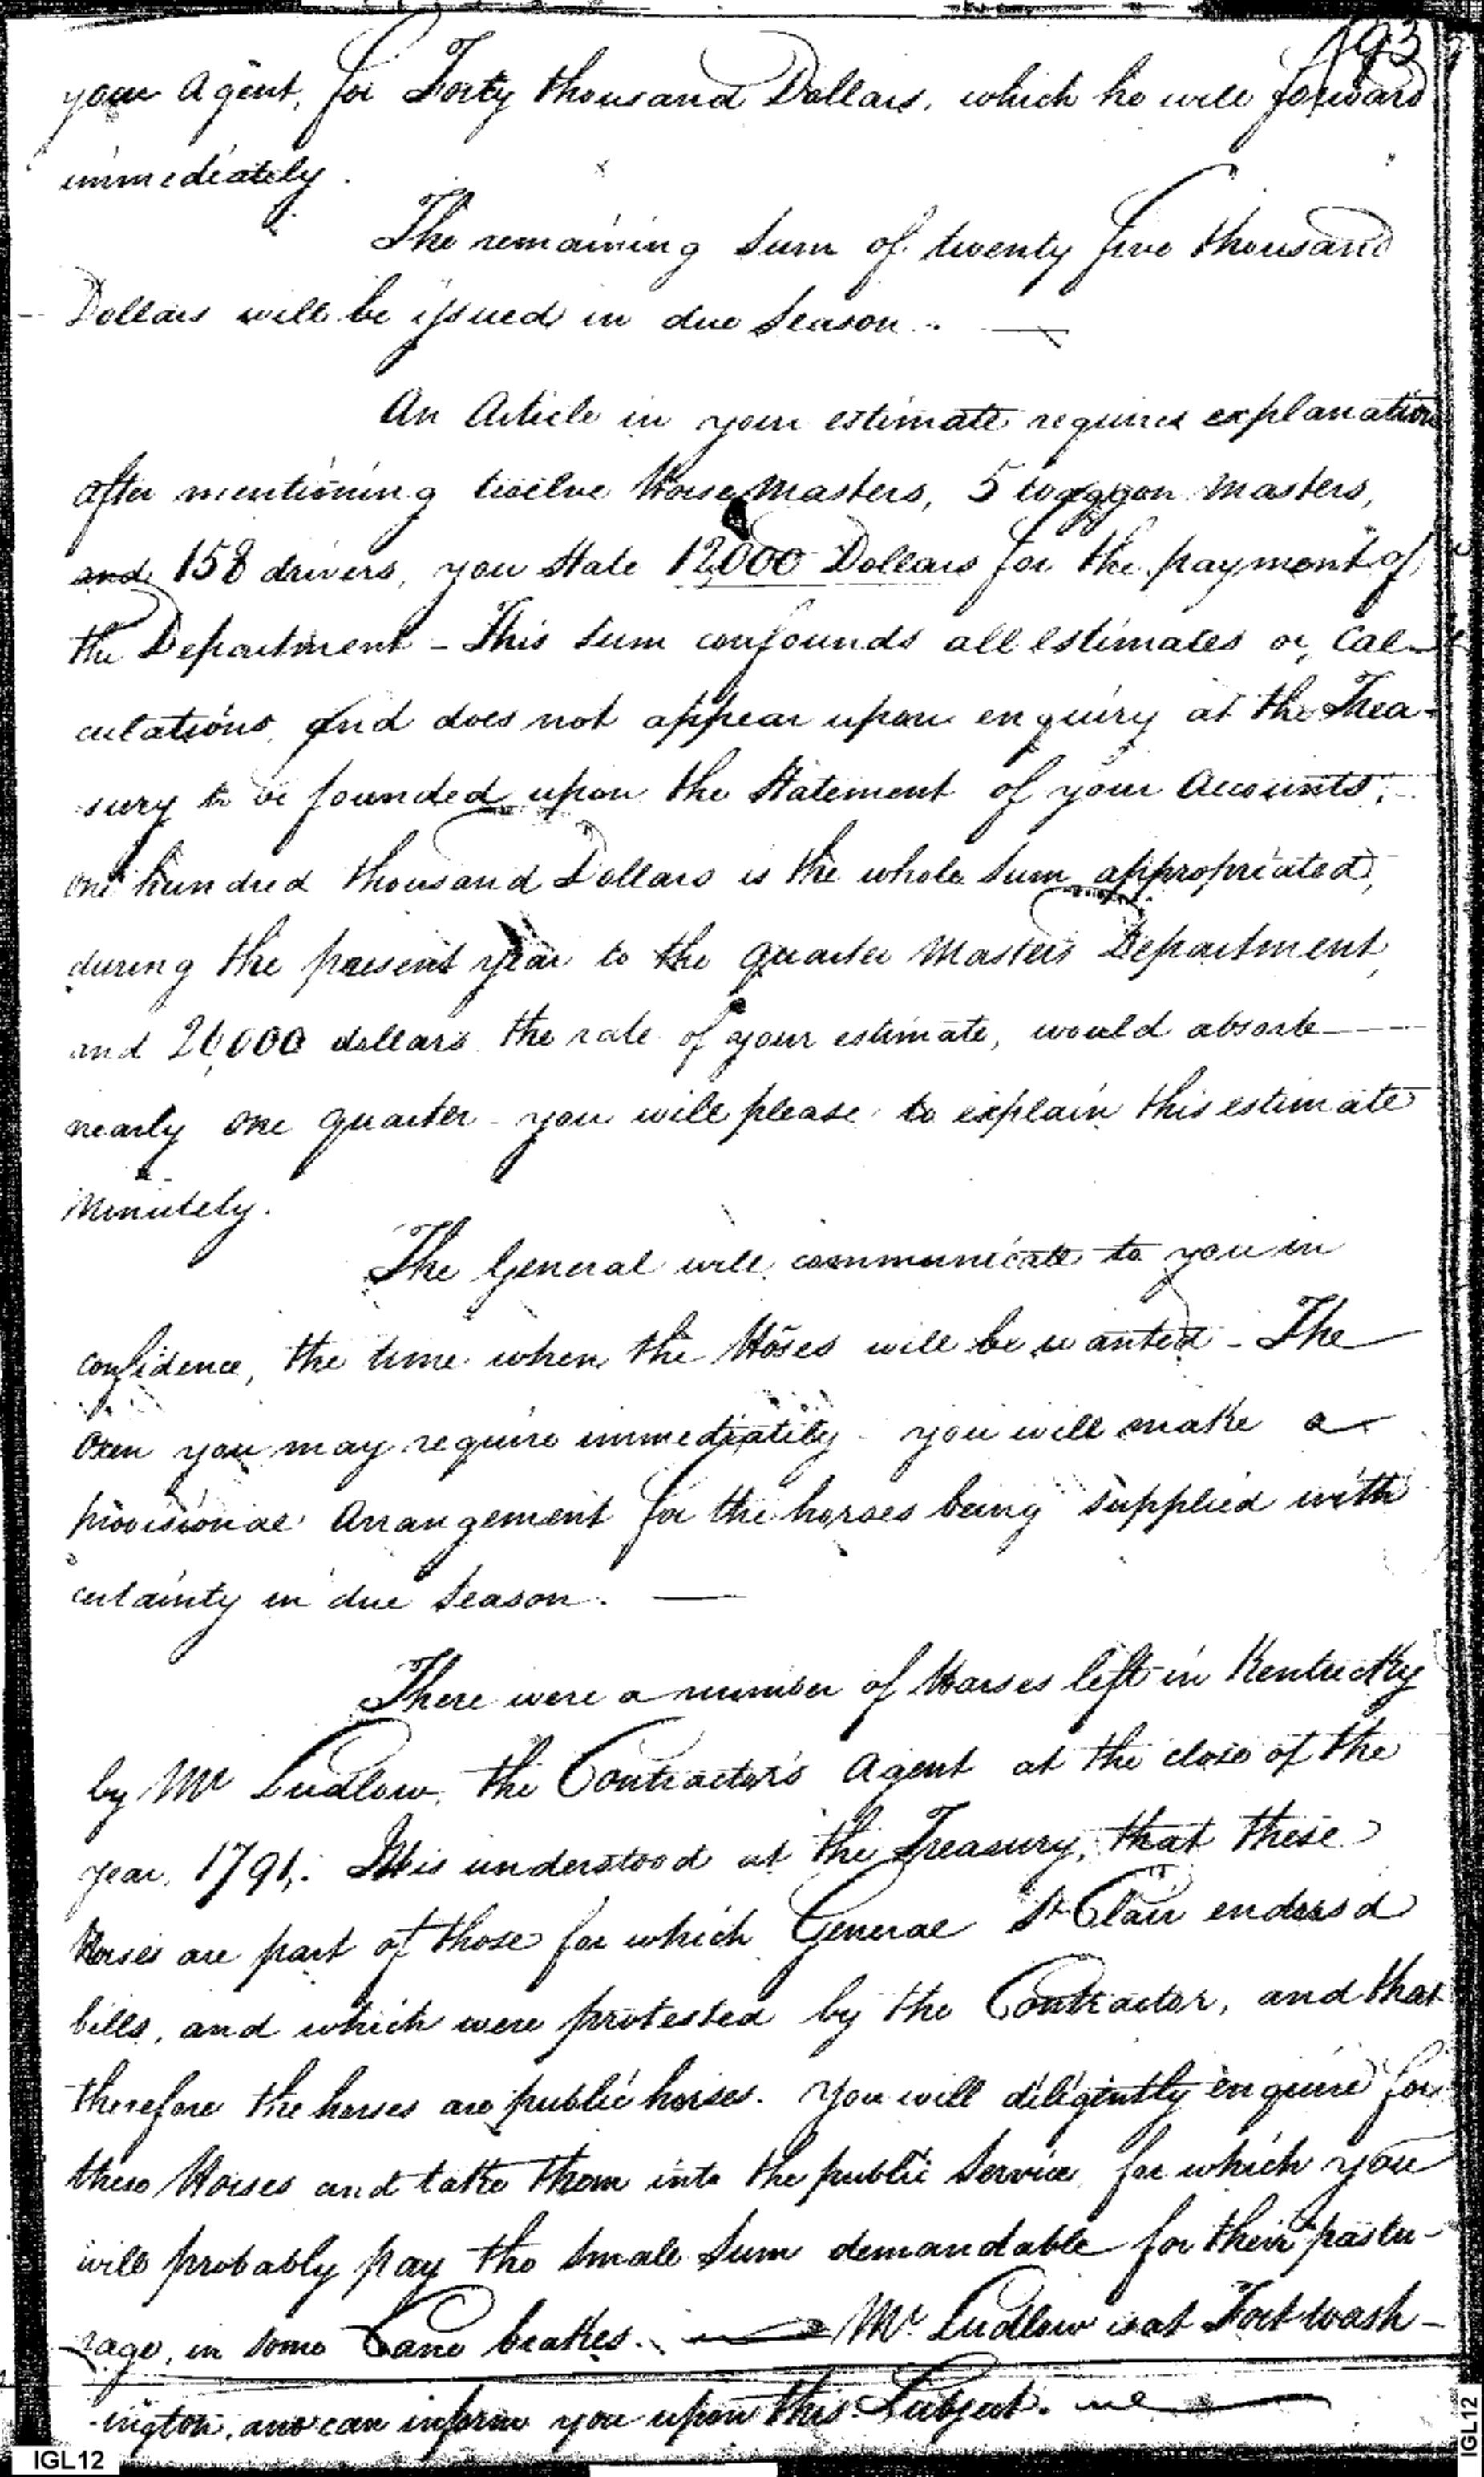 193
your Agent, for Forty thousand Dollars, which he will forward
immediately.
The remaining sum of twenty five thousand
Dollars will be issued in due season. —
An Article in your estimate requires explanation
after mentioning twelve Horse Masters, 5 waggon Masters,
and 158 drivers, you state 12,000 Dollars for the payment of
the Department - This sum confounds all estimates or, Cal-
culations, and does not appear upon enquiry at the Trea-
sury to be founded upon the Statement of your Accounts,
one hundred thousand Dollars is the whole sum appropriated,
during the present year to the Quarter Masters Department,
and 24,000 dollars the rate of your estimate, would absorb
nearly one quarter - you will please to explain this estimate
Minutely.
The General will communicate to you in
confidence, the time when the Hoses will be wanted - The
Oxen you may require immediately - you will make a
provisional Arrangement for the horses being supplied with
certainty in due Season. —
There were a number of Horses left in Kentucky
by Mr Ludlow, the Contractor's Agent at the close of the
year, 1791,. It is understood at the Treasury, that these
Horses are part of those for which General St Clair endorsd
bills, and which were protested by the Contractor, and that
therefore the horses are public horses. You will diligently enquire for
these Horses and take them into the public service, for which you
will probably pay the small sum demandable for their pastu-
rage, in some Cane brakes. — Mr Ludlow is at Fort wash-
-ington, and can inform you upon this Subject.
IGL12
IGL12